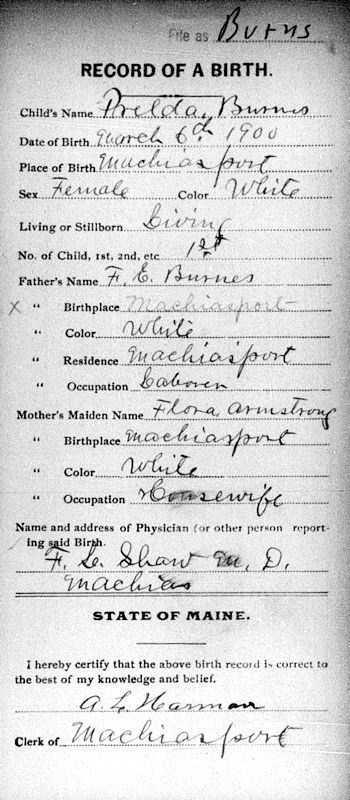 File as Burns
RECORD OF A BIRTH.
Child's Name Prelda, Burnes
Date of Birth March 6th 1900
Place of Birth Machiasport
Sex Female Color White
Living or Stillborn Living
No. of Child, 1st, 2nd, etc 1st
Father's Name F. E. Burnes
x " Birthplace Machiasport
" Color White
" Residence Machiasport
" Occupation Laborer
Mother's Maiden Name Flora Armstrong
" Birthplace Machiasport
" Color White
" Occupation Housewife
Name and address of Physician (or other person report-
ing said Birth.
F. L. Shaw M. D.
Machias
STATE OF MAINE.
I hereby certify that the above birth record is correct to
the best of my knowledge and belief.
A. L. Harmon
Clerk of Machiasport